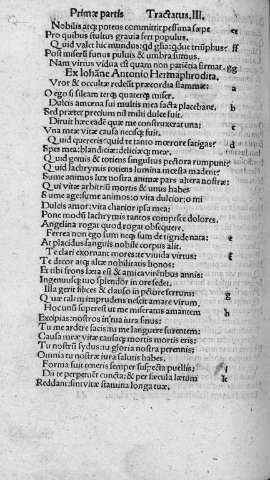 Primæ partis Tractatus. III.
Nobilis atq; potens committit pessima sæpe ee
Pro quibus stultus grauia fert populus.
Quid valet hic mundus: qd gloria: que triuphus ff
Post miseru funus puluis & vmbra sumus.
Nam virius vidua est quam non patientia firmat. gg
Ex Iohane Antonio Hermaphrodita.
Vror & occultæ rodesti præcordia flammæ a
O ego si sileam terq; quaterq; miser.
Dulcis amœna sui multis mea facta placebant. b
Sed præter precium nil mihi dulce fuit.
Diruit hæc eadē quæ me construxerat vna: c
Vna meæ vitæ causa necisq; fuit.
Quid quereris: quid te tanto mœrore fatigas: d
Spes mea: blandiciæ: deliciæq; meæ.
Quid gemis & totiens singultus pectora rumpunt:
Quid lachrymis totiens lumina mœsta madent:
Sume animos lux nostra animæ pars altera nostræ:
Qui vitæ arbitriū mortis & vnus habes
Sume age: sume animos: o vita dulcior: o mi
Dulcis amor: vita charior ipsa mea:
Pone modū lachrymis tantos compesce dolores.
Angelina rogat quod rogat obsequere.
Ferrea non ego sum neq; sum de tigride nata: e
At placidus sanguis nobile corpus alit.
Te clari exornant mores: te viuida virtus: f
Te decor atq; altæ nobilitatis honos:
Et tibi frons læta est & amica virētibus annis:
Ingenuusq; tuo splendor in ore sedet.
Illa gerit silices & clauso in pectore ferrum: g
Quæ talem imprudens nescit amare virum.
Hoc unū superest ut me miseratus amantem h
Excipias: nostros in sinua iura sinus:
Tu me ardere facis: tu me languere furentem:
Causa meæ vitæ causaq; mortis mortis eris:
Tu nostrū sydus: tu gloria nostra perennis:
Omnia tu nostræ iura salutis habes.
Forma fuit teneris semper suspecta puellis: i
Dii te perpetuēt cuncta: & per sæcula lætum k
Reddant: sint vitæ stamina longa tuæ.